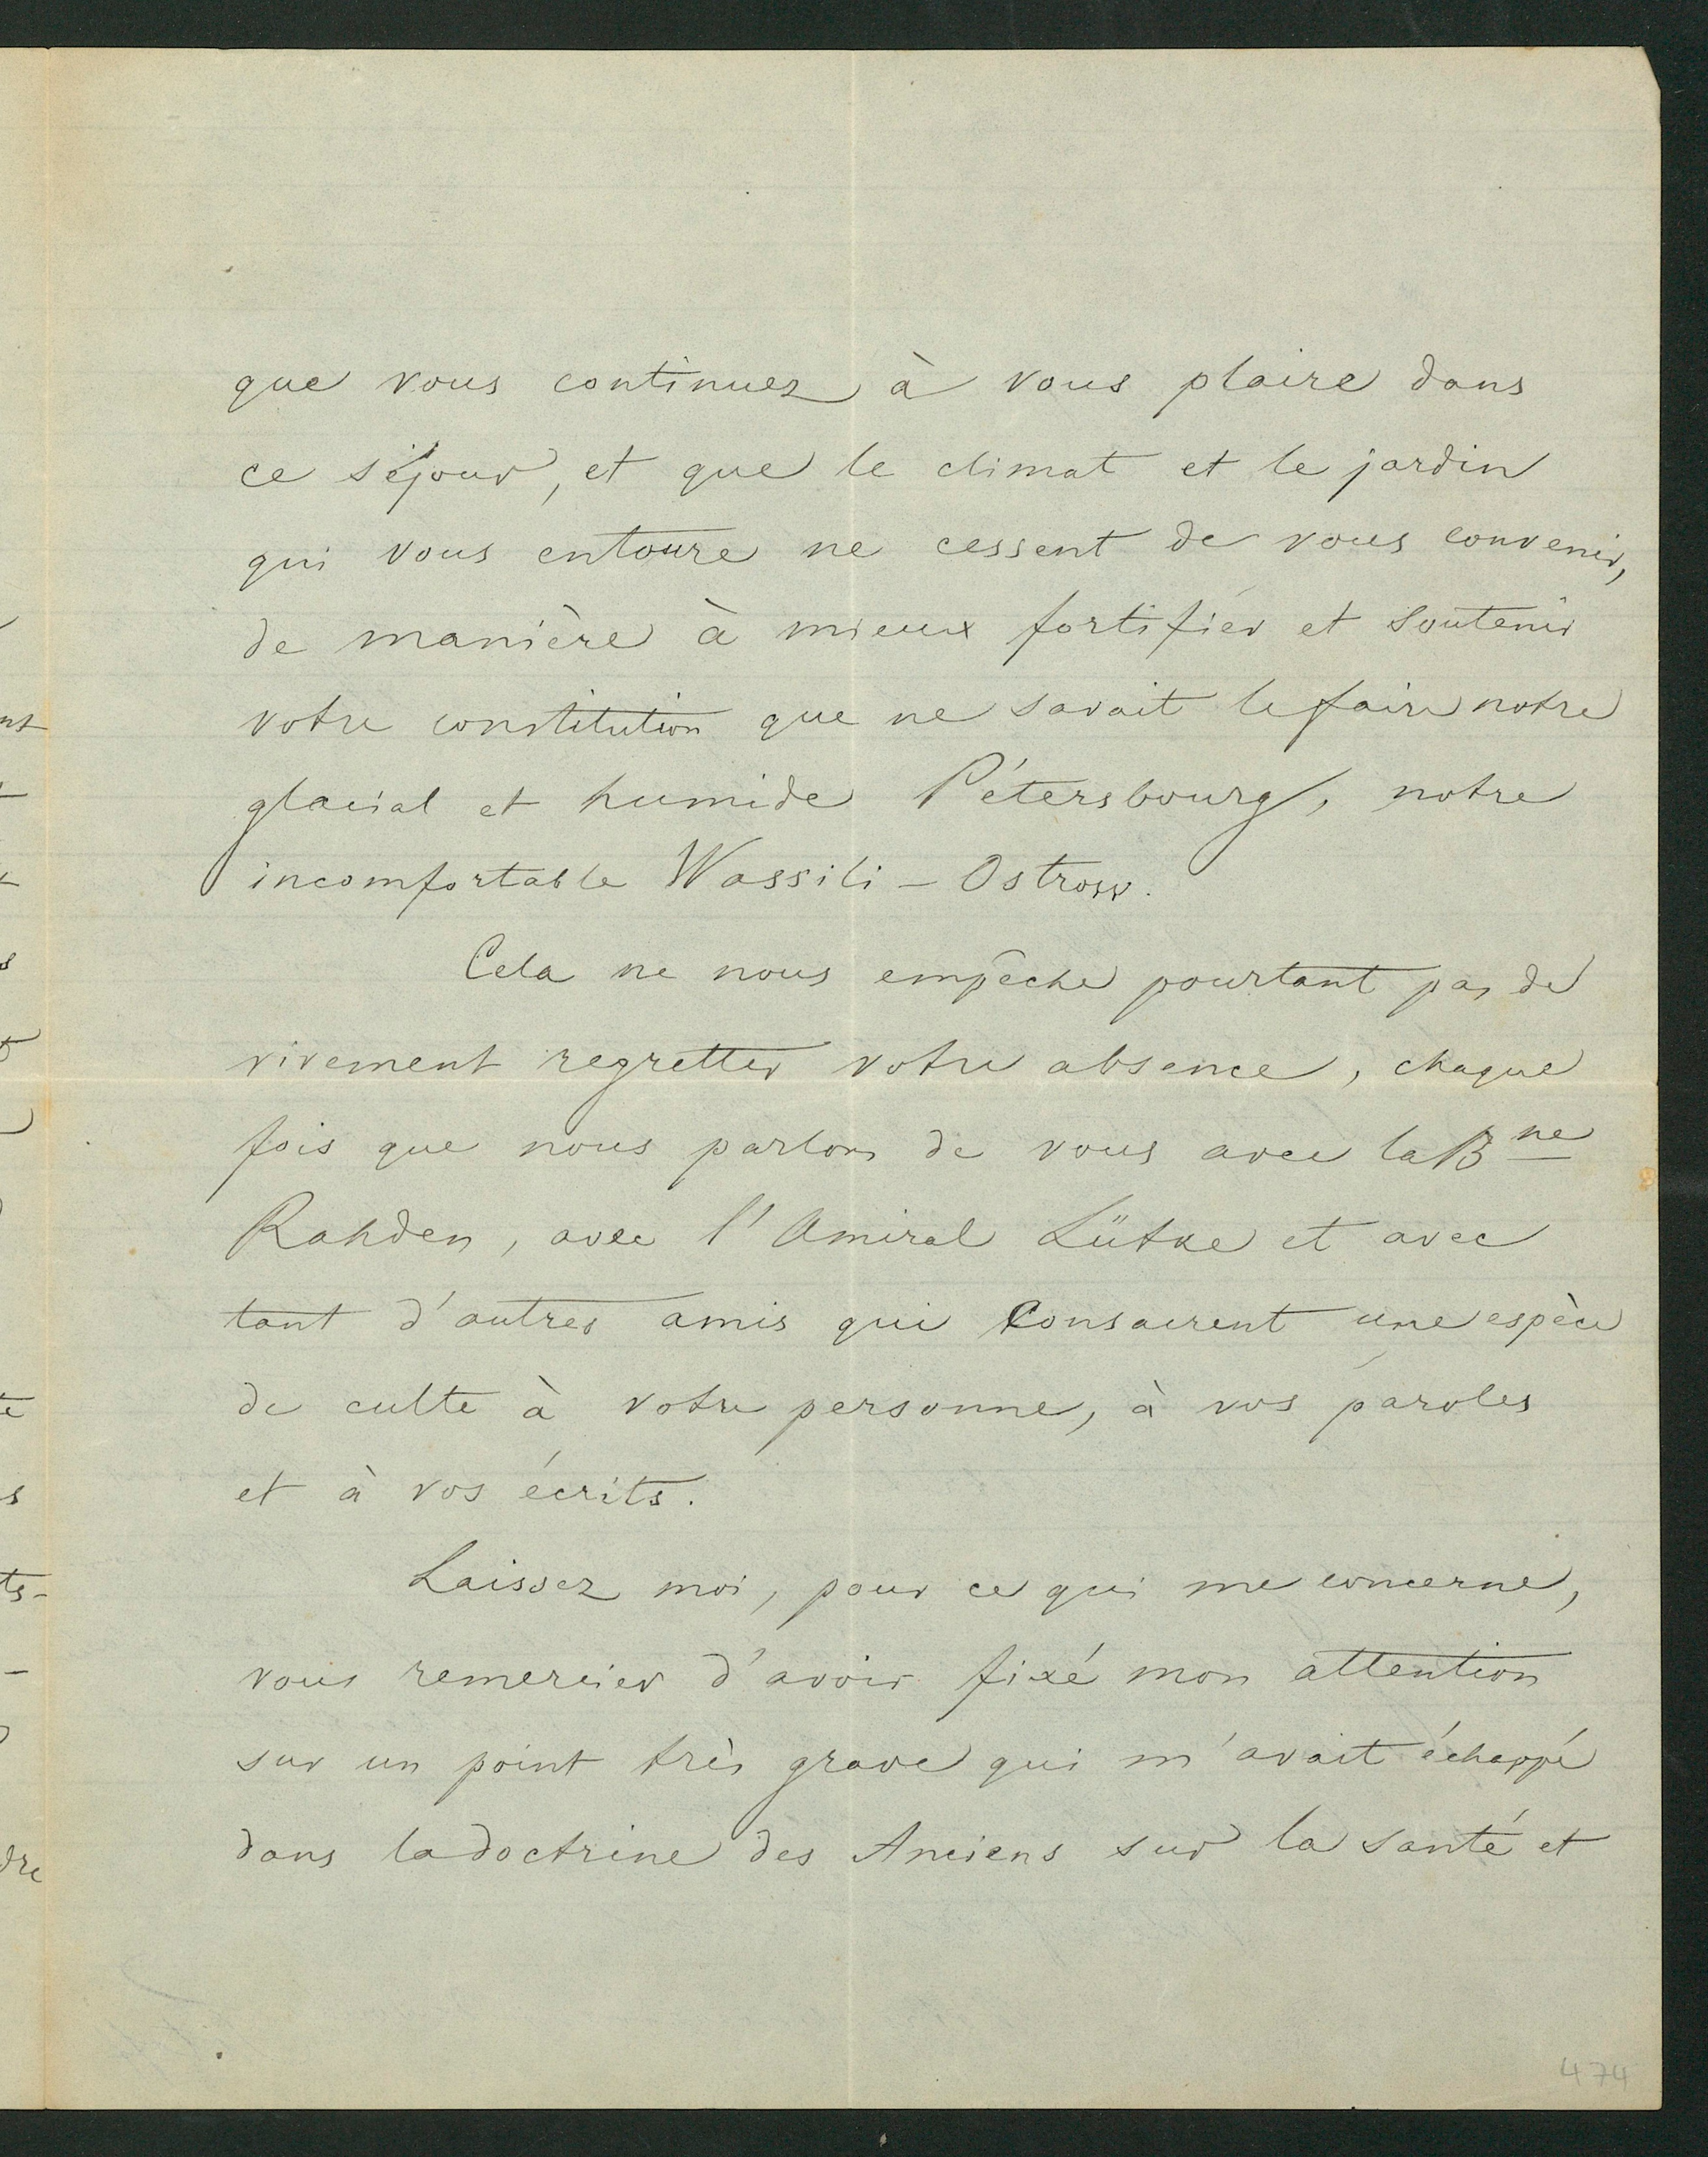 que vous continuez à vous plaire dans
ce séjour, et que le climat et le jardin
qui vous entoure ne cessent de vous convenir,
de manière à mieux fortifier et soutenir
votre constitution que ne savait le faire notre
glacial et humide Pétersbourg, notre
incomfortable Wassili-Ostrow.
Cela ne nous empêche pourtant pas de
vivement regretter votre absence, chaque
fois que nous parlons de vous avec la Bne
Rahden, avec l'Amiral Lütke et avec
tant d'autres amis qui consacrent une espèce
de culte à votre personne, à vos paroles
et à vos écrits.
Laissez moi, pour ce qui me concerne,
vous remercier d'avoir fixé mon attention
sur un point très grave qui m'avait échappé
dans la doctrine des Anciens sur la santé et
474